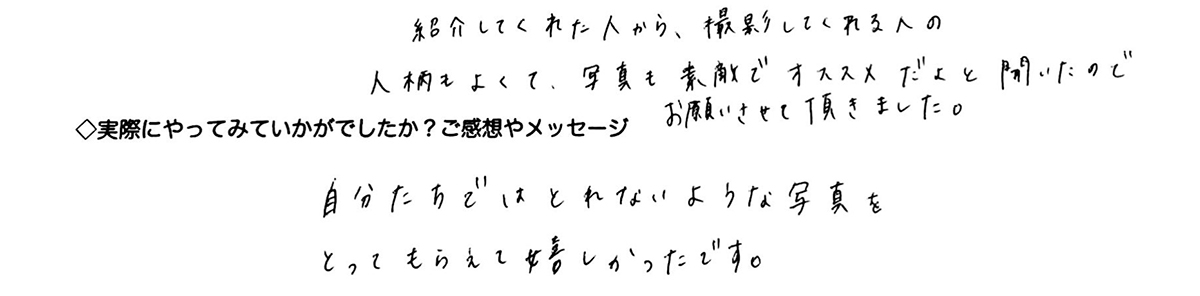 紹介してくれた人から、撮影してくれる人の
人柄もよくて、写真も素敵でオススメだよと聞いたので
お願いさせて頂きました。
◇実際にやってみていかがでしたか？ご感想やメッセージ
自分たちではとれないような写真を
とってもらえて嬉しかったです。